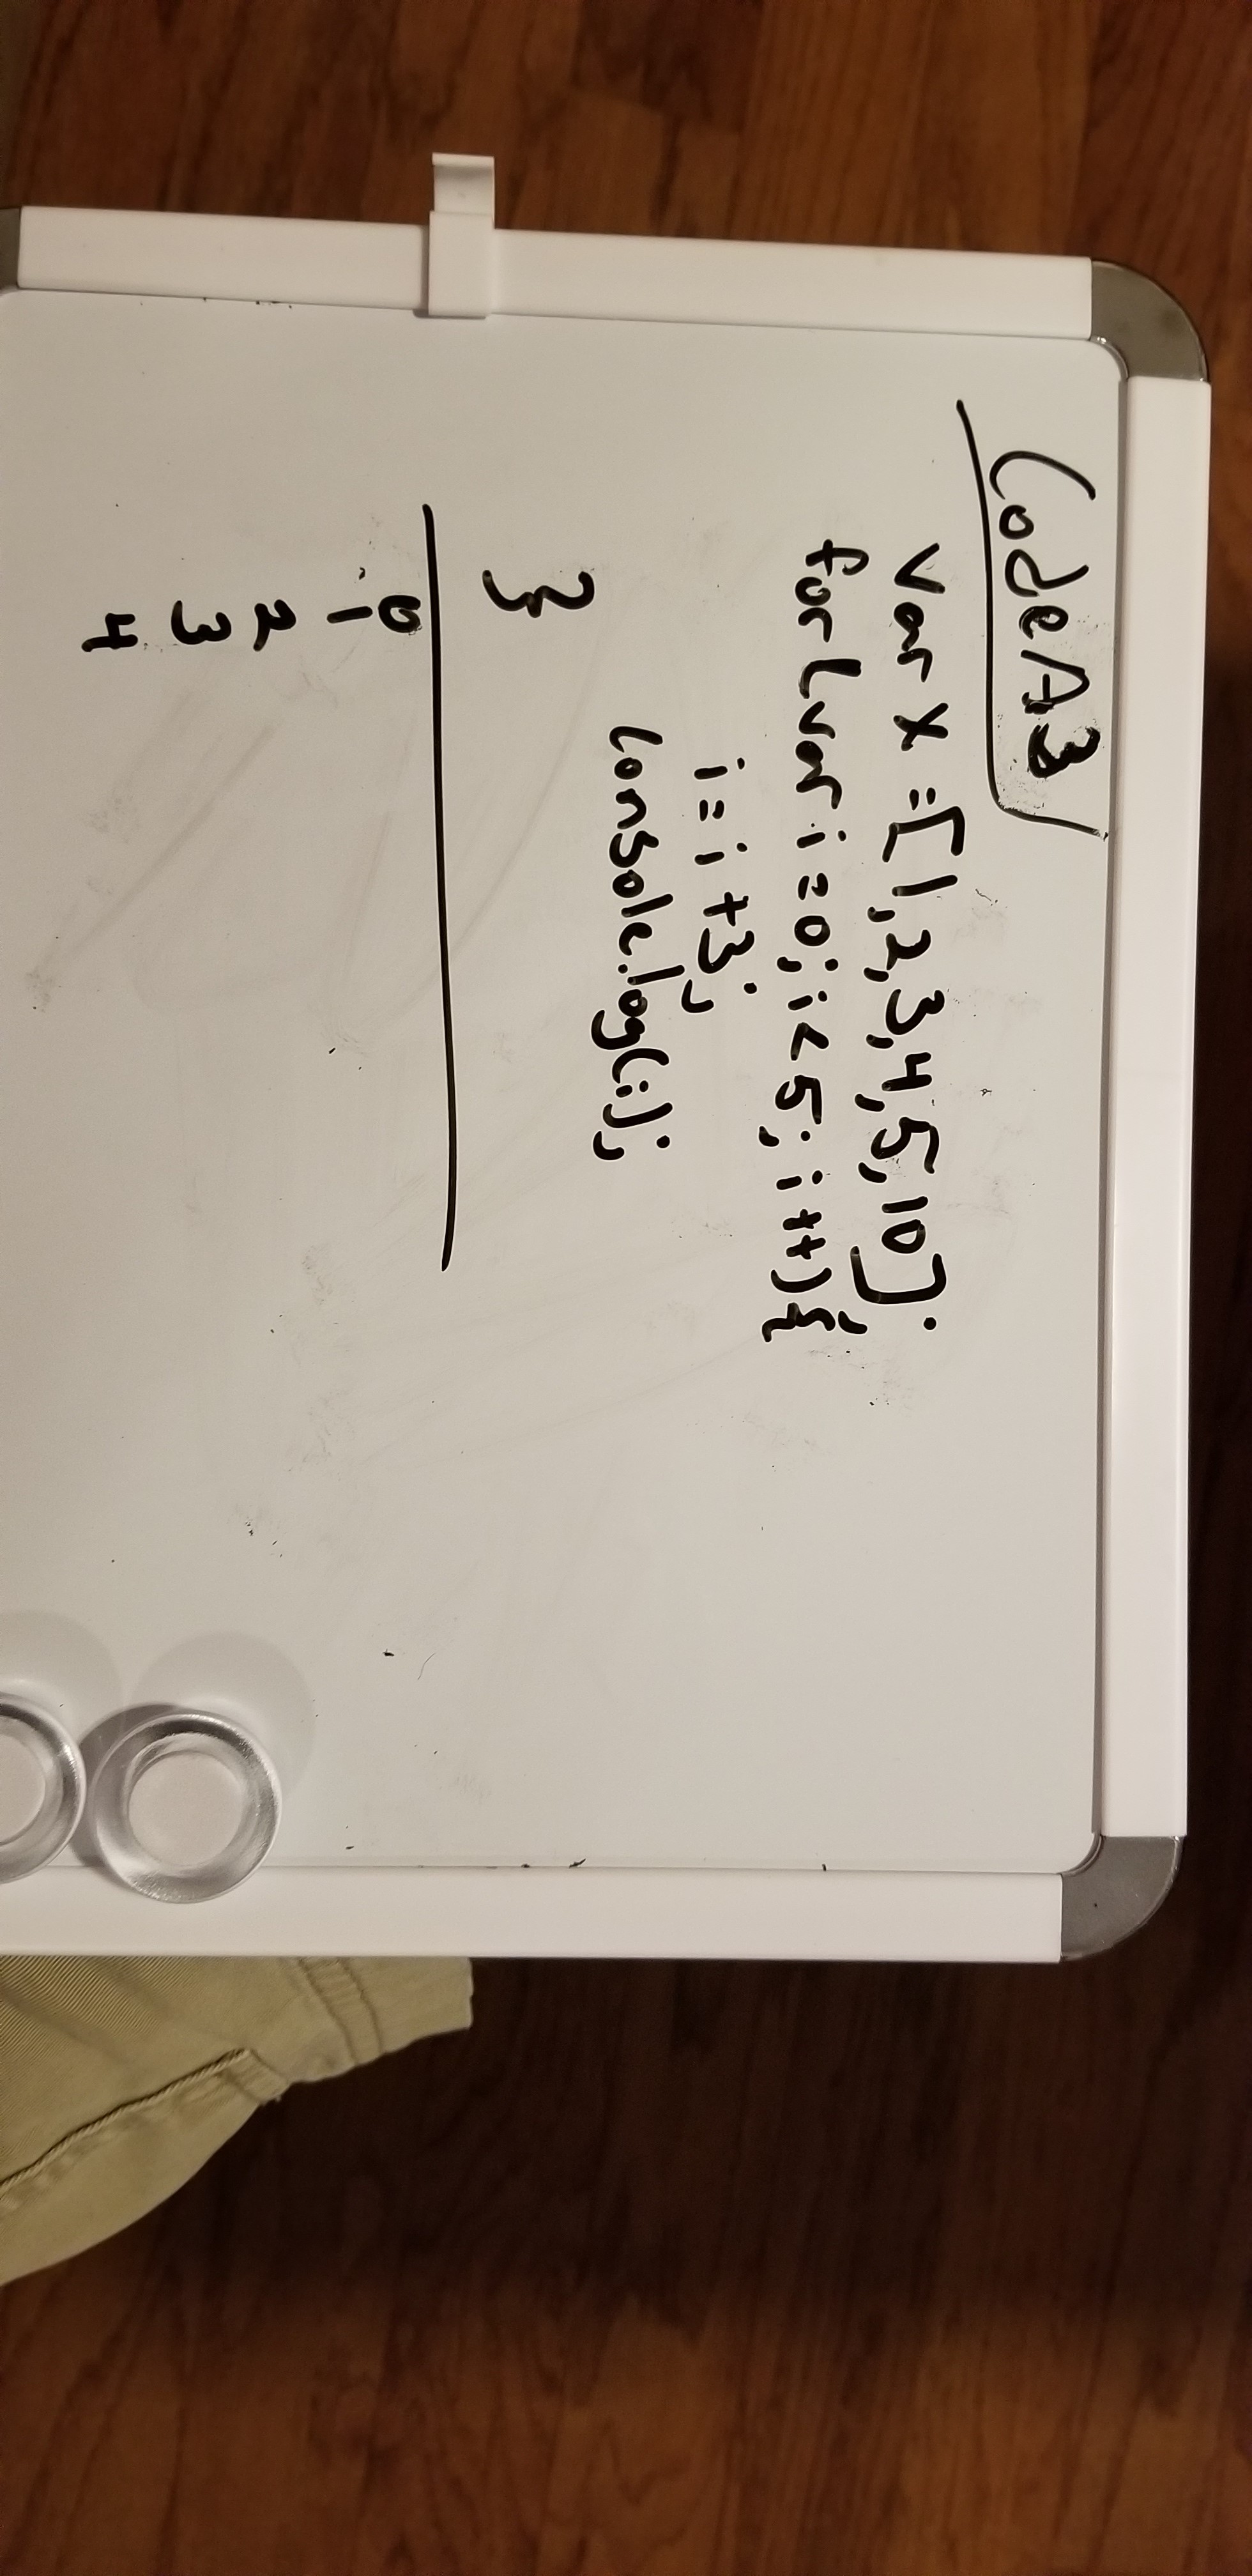 Code A3
var x = [1,2,3,4,5,10];
for (var i = 0; i < 5; i++) {
i = i + 3;
console.log(i);
}
0
1
2
3
4